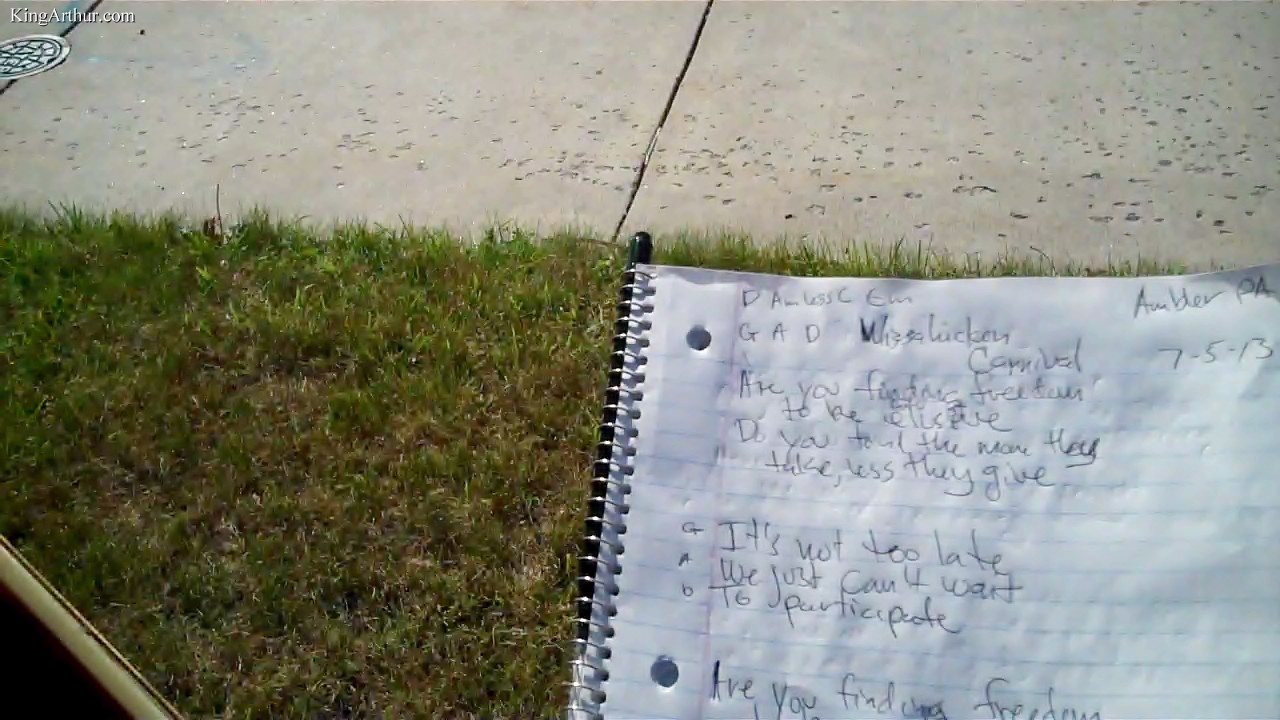 KingArthur.com
D Am C Em
Ambler PA
G A D Wissahickon
Carnival
7-5-13
Are you finding freedom
to be elusive
Do you find the more they
take, less they give
G It's not too late
A We just can't wait
D To participate
Are you finding freedom